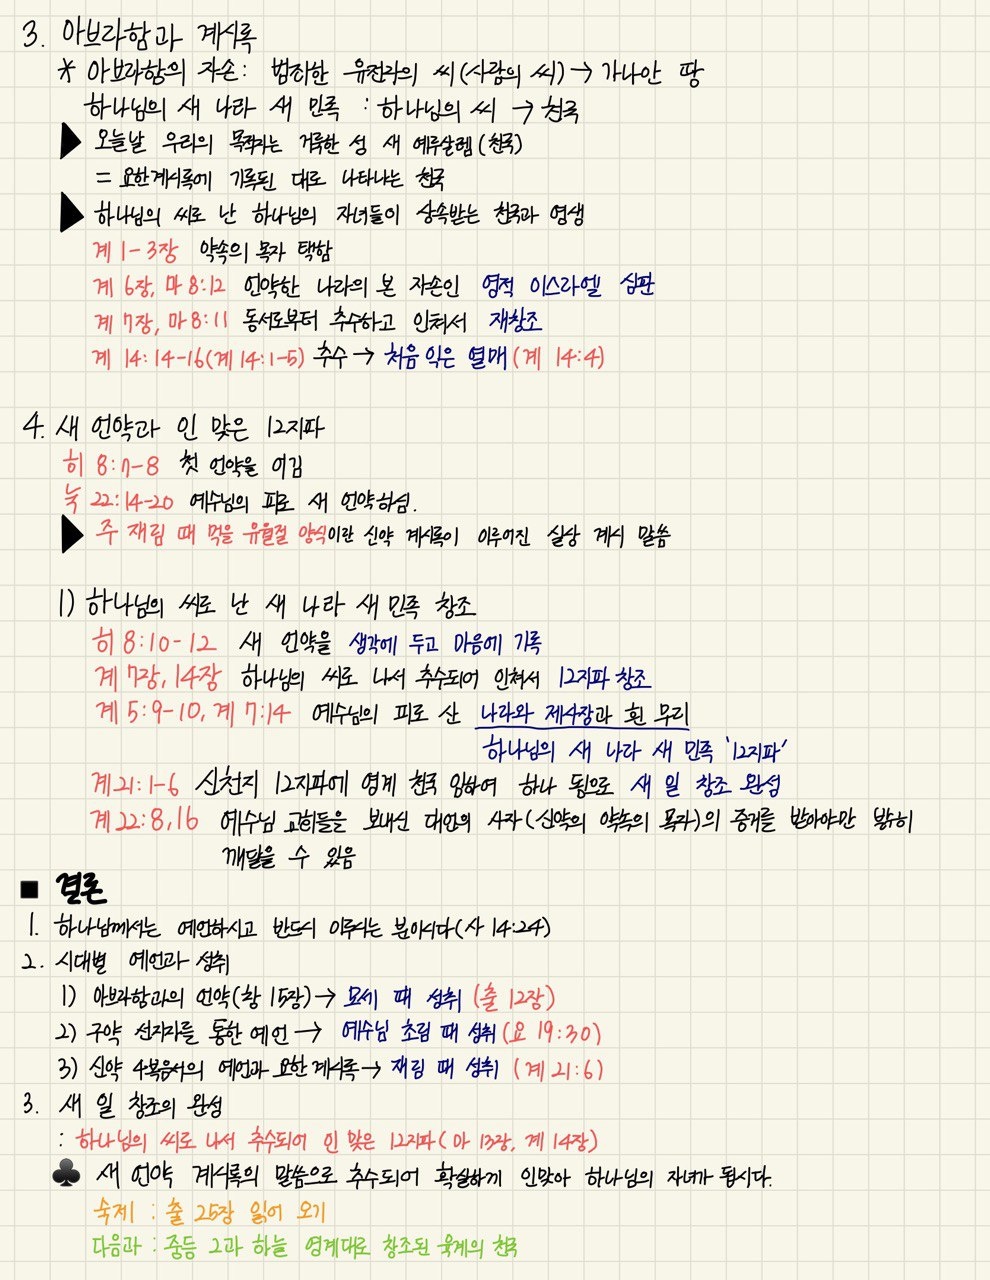 3. 아브라함과 계시록
* 아브라함의 자손: 범죄한 유전자의 씨(사람의 씨)→ 가나안 땅
하나님의 새 나라 새 민족 : 하나님의 씨 → 천국
▶ 오늘날 우리의 목적지는 거룩한 성 새 예루살렘(천국)
= 요한계시록에 기록된 대로 나타나는 천국
▶ 하나님의 씨로 난 하나님의 자녀들이 상속받는 천국과 영생
계 1-3장 약속의 목자 택함
계 6장, 마 8:12 언약한 나라의 본 자손인 영적 이스라엘 심판
계 7장, 마 8:11 동서로부터 추수하고 인쳐서 재창조
계 14:14-16(계 14:1-5) 추수 → 처음 익은 열매(계 14:4)
4. 새 언약과 인 맞은 12지파
히 8:7-8 첫 언약을 어김
눅 22:14-20 예수님의 피로 새 언약하심.
▶ 주 재림 때 먹을 유월절 양식이란 신약 계시록이 이루어진 실상 계시 말씀
1) 하나님의 씨로 난 새 나라 새 민족 창조
히 8:10-12 새 언약을 생각에 두고 마음에 기록
계 7장, 14장 하나님의 씨로 나서 추수되어 인쳐서 12지파 창조
계 5:9-10, 계 7:14 예수님의 피로 산 나라와 제사장과 흰 무리
하나님의 새 나라 새 민족 '12지파'
계21:1-6 신천지 12지파에 영계 천국 임하여 하나 됨으로 새 일 창조 완성
계22:8,16 예수님 교회들을 보내신 대언의 사자(신약의 약속의 목자)의 증거를 받아야만 밝히
깨달을 수 있음
■ 결론
1. 하나님께서는 예언하시고 반드시 이루시는 분이시다(사 14:24)
2. 시대별 예언과 성취
1) 아브라함과의 언약(창 15장)→ 모세 때 성취 (출 12장)
2) 구약 선지자를 통한 예언 → 예수님 초림 때 성취(요 19:30)
3) 신약 4복음서의 예언과 요한계시록→ 재림 때 성취 (계21:6)
3. 새 일 창조의 완성
: 하나님의 씨로 나서 추수되어 인 맞은 12지파(마 13장, 계 14장)
♣ 새 언약 계시록의 말씀으로 추수되어 확실하게 인맞아 하나님의 자녀가 됩시다.
숙제 : 출 25장 읽어 오기
다음과 : 중등 2과 하늘 영계대로 창조된 육계의 천국